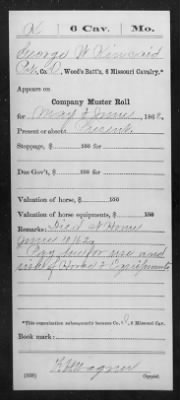 K | 6 Cav. | Mo.
George W Kincaid
Pvt, Co. O, Wood's Batt'n, 6 Missouri Cavalry.*
Appears on
Company Muster Roll
for May & June, 186
Present or absent Present
Stoppage, $ 100 for
Due Gov't, $ 100 for
Valuation of horse, $ 100
Valuation of horse equipments, $ 100
Remarks: Died at Home
June 10/62
Pay due for use and
risk of Horse & Equipments
*This organization subsequently became Co. , 6 Missouri Cav.
Book mark:
(358)
Copyist.